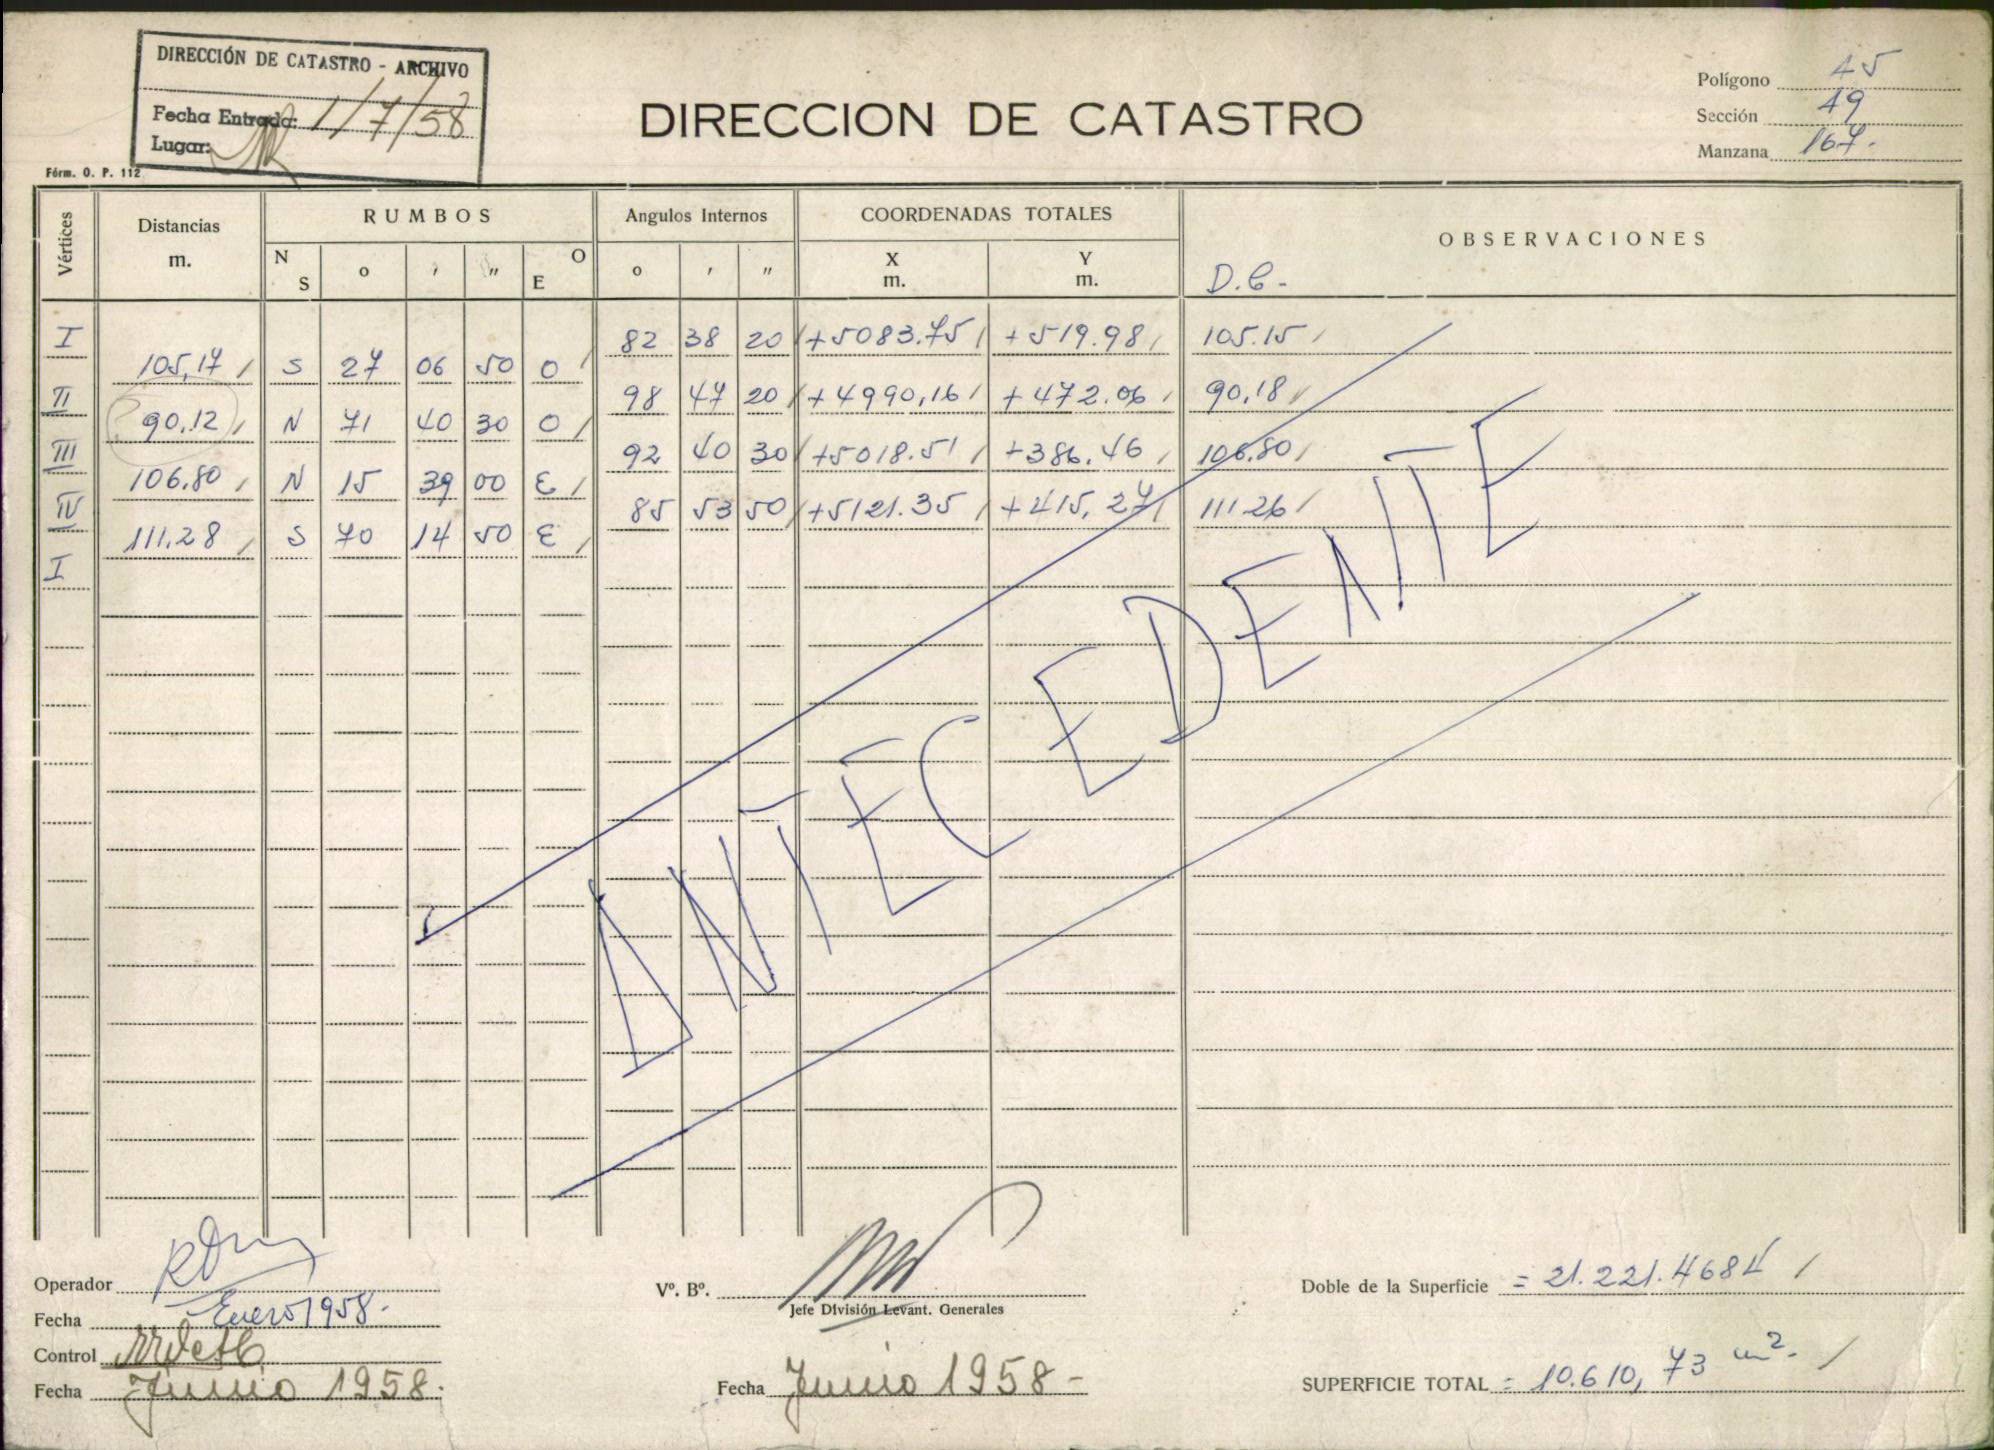 DIRECCIÓN DE CATASTRO - ARCHIVO
Fecha Entrada: 1/7/58
Lugar:
Fórm. O. P. 112
DIRECCION DE CATASTRO
Polígono 45
Sección 49
Manzana 167.
Vértices Distancias m. RUMBOS Angulos Internos COORDENADAS TOTALES OBSERVACIONES
N S o ' " E O o ' " X m. Y m. D.C.-
I 82 38 20 +5083.75 +519.98 105.15
105,17 S 27 06 50 O
II 98 47 20 +4990,16 +472.06 90,18
90.12 N 71 40 30 O
III 92 40 30 +5018.51 +386.46 106.80
106.80 N 15 39 00 E
IV 85 53 50 +5121.35 +415,27 111.26
111.28 S 70 14 50 E
I
ANTECEDENTE
Operador
Fecha Enero 1958.
Control
Fecha Junio 1958.
Vº. Bº.
Jefe División Levant. Generales
Fecha Junio 1958-
Doble de la Superficie = 21.221.4684
SUPERFICIE TOTAL = 10.610,73 m².